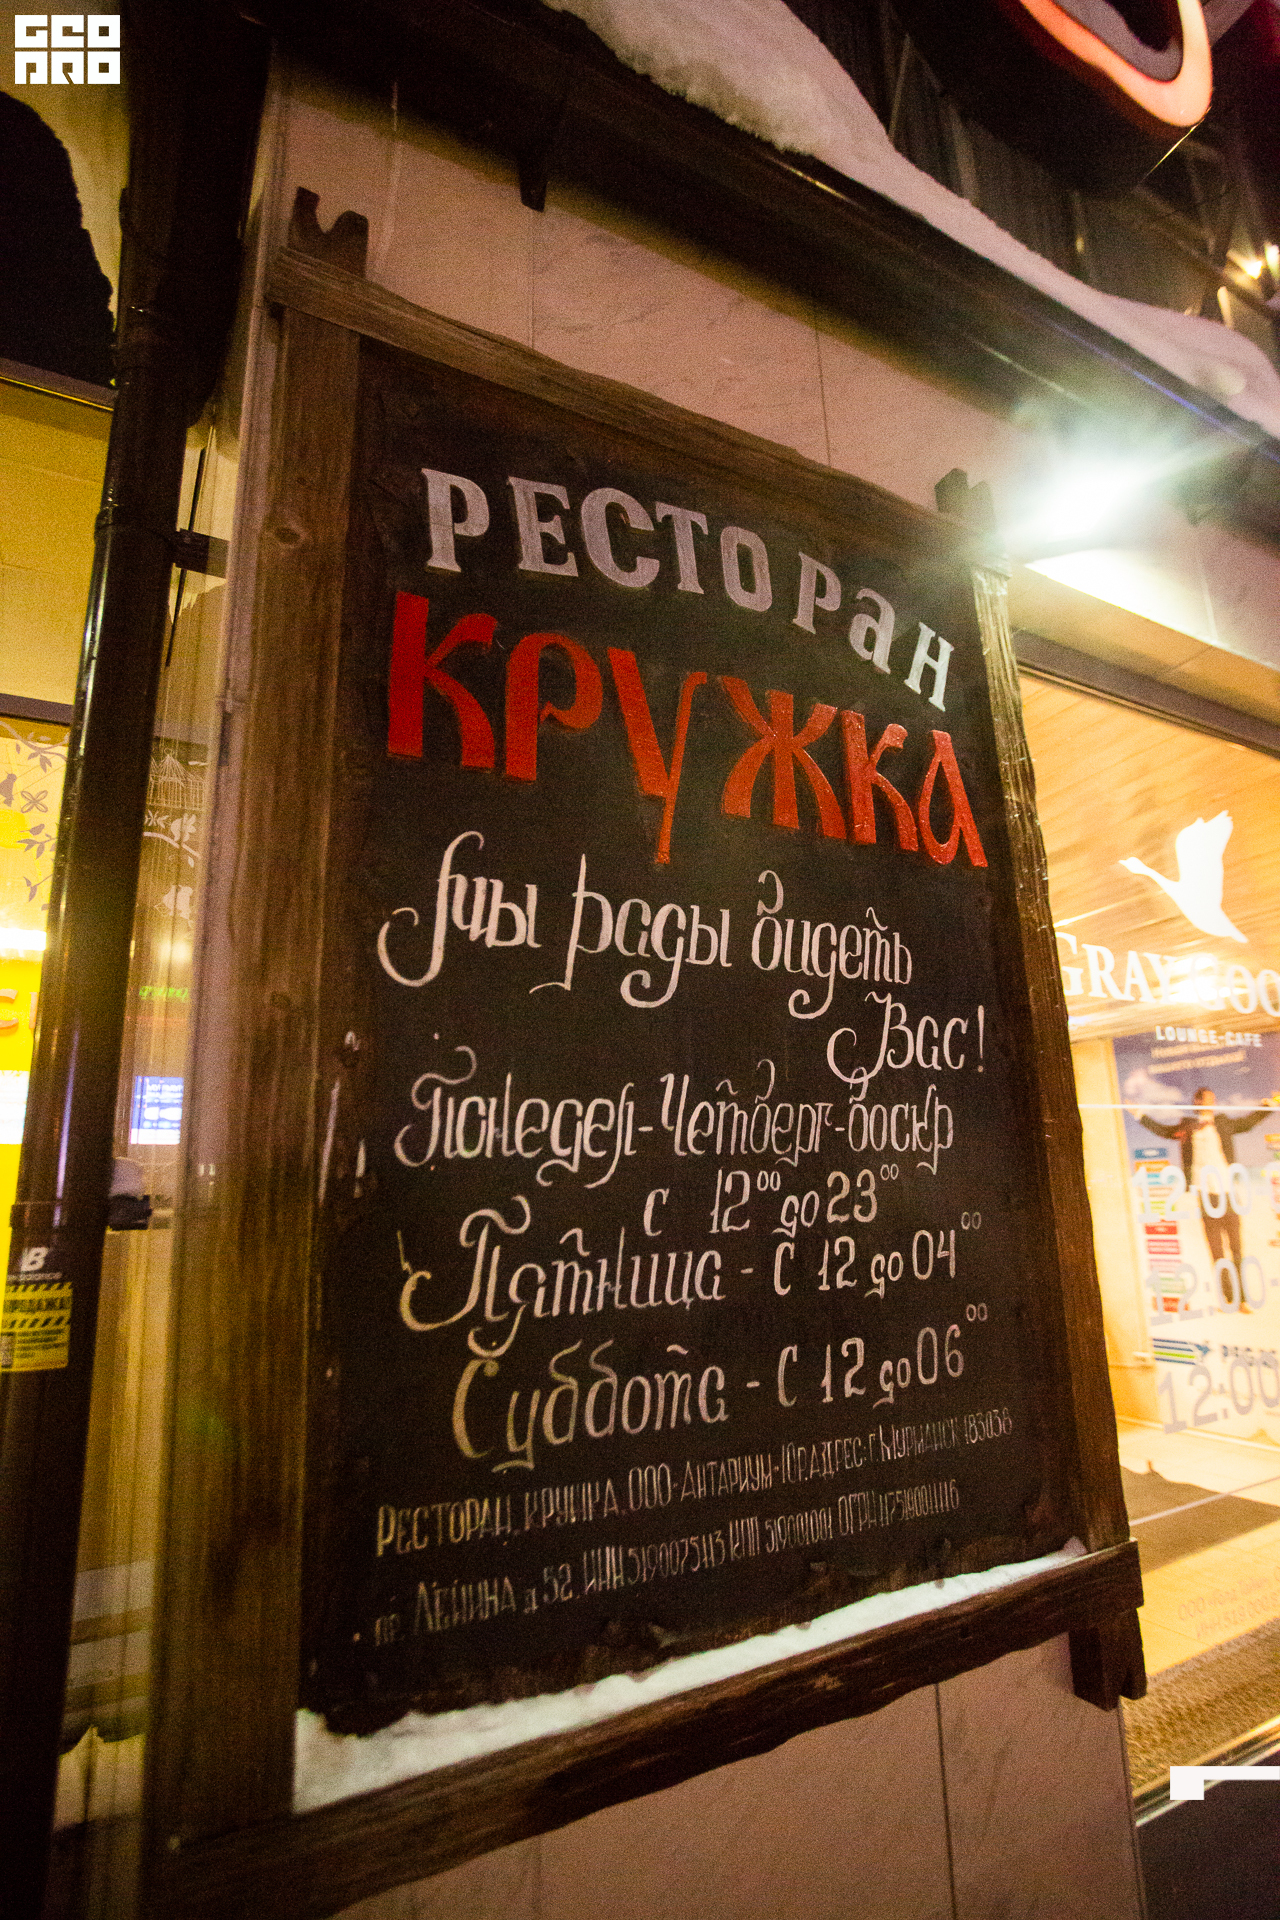 GEO
PRO
РЕСТОРАН
КРУЖКА
мы рады видеть
Вас!
Понедел-Четверг-воскр
с 12⁰⁰ до 23⁰⁰
Пятница - с 12 до 04⁰⁰
Суббота - с 12 до 06⁰⁰
РЕСТОРАН, КРУЖКА, ООО-АНТАРИУМ-ЮР.АДРЕС: Г. МУРМАНСК 183038
пр. ЛЕНИНА д 52. ИНН 5190075113 КПП 519001001 ОГРН 1175190011116
GRAY GOO
LOUNGE-CAFE
12:00
12:00-
12:00
NB